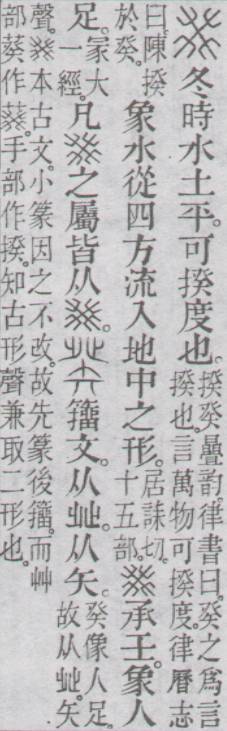 𤼩冬時水土平。可揆度也。揆癸疊韵。律書曰。癸之爲言揆也。言萬物可揆度。律曆志
曰。陳揆於癸。象水從四方流入地中之形。居誄切。十五部。𤼩承壬。象人
足。冡大一經。凡𤼩之屬皆从𤼩。癸籒文。从癶。从矢。癸像人足。故从癶。矢
聲。𤼩本古文。小篆因之不改。故先篆後籒。而艸部葵作葵。手部作揆。知古形聲兼取二形也。